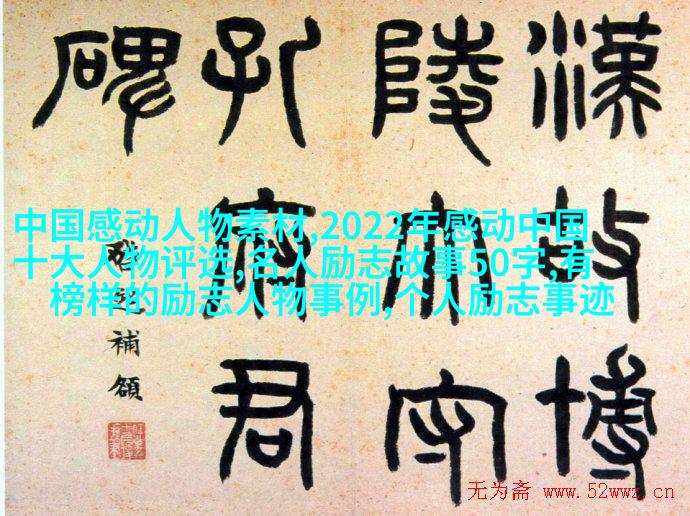 漢故博
陵太守
孔府君
碑
補額
中国感动人物素材,2022年感动中国
十大人物评选,名人励志故事50字,有
榜样的励志人物事例,个人励志事迹
无为斋 www.52wwz.cn